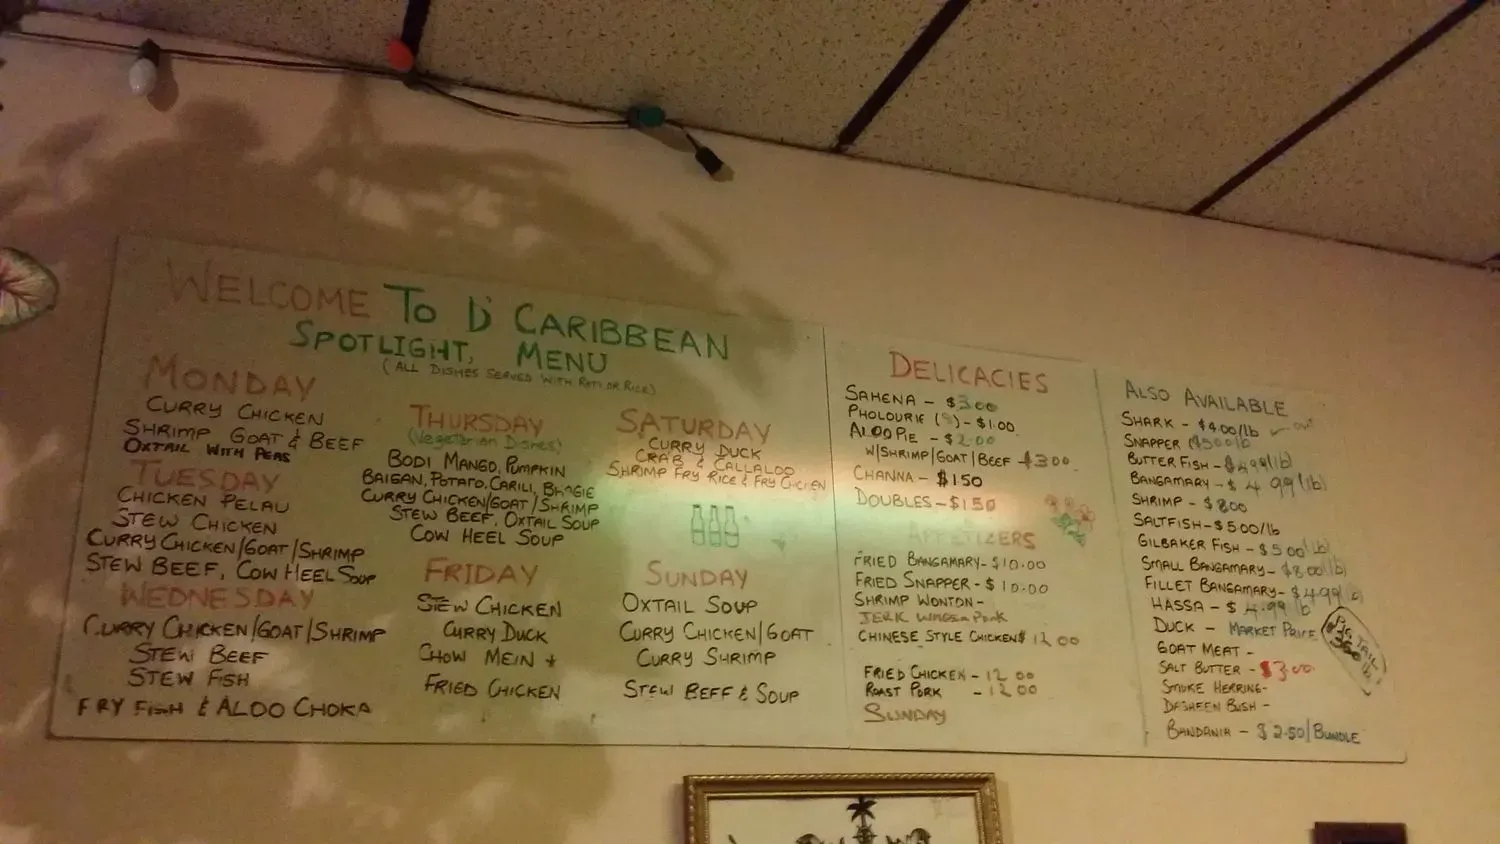 WELCOME TO D' CARIBBEAN
SPOTLIGHT, MENU
(ALL DISHES SERVED WITH ROTI OR RICE)
MONDAY
CURRY CHICKEN
SHRIMP GOAT & BEEF
OXTAIL WITH PEAS
TUESDAY
CHICKEN PELAU
STEW CHICKEN
CURRY CHICKEN/GOAT/SHRIMP
STEW BEEF, COW HEEL SOUP
WEDNESDAY
CURRY CHICKEN/GOAT/SHRIMP
STEW BEEF
STEW FISH
FRY FISH & ALOO CHOKA
THURSDAY
(Vegetarian Dishes)
BODI MANGO, PUMPKIN
BAIGAN, POTATO, CARILI, BHAGIE
CURRY CHICKEN/GOAT/SHRIMP
STEW BEEF, OXTAIL SOUP
COW HEEL SOUP
FRIDAY
STEW CHICKEN
CURRY DUCK
CHOW MEIN +
FRIED CHICKEN
SATURDAY
CURRY DUCK
CRAB & CALLALOO
SHRIMP FRY RICE & FRY CHICKEN
SUNDAY
OXTAIL SOUP
CURRY CHICKEN/GOAT
CURRY SHRIMP
STEW BEEF & SOUP
DELICACIES
SAHENA - $3.00
PHOLOURIE (5) - $1.00
ALOOPIE - $2.00
W/SHRIMP/GOAT/BEEF $3.00
CHANNA - $1.50
DOUBLES - $1.50
APPETIZERS
FRIED BANGAMARY - $10.00
FRIED SNAPPER - $10.00
SHRIMP WONTON -
JERK WINGS Pork
CHINESE STYLE CHICKEN $12.00
FRIED CHICKEN - 12.00
ROAST PORK - 12.00
SUNDAY
ALSO AVAILABLE
SHARK - $4.00/lb
SNAPPER
BUTTER FISH - $4.99(lb)
BANGAMARY - $4.99(lb)
SHRIMP - $8.00
SALTFISH - $5.00/lb
GILBAKER FISH - $5.00(lb)
SMALL BANGAMARY - $8.00(lb)
FILLET BANGAMARY - $4.99(lb)
HASSA - $4.99 lb
DUCK - MARKET PRICE
GOAT MEAT -
SALT BUTTER - $3.00
SMOKE HERRING -
DASHEEN BUSH -
BANDANIA - $2.50/BUNDLE
PIG TAIL